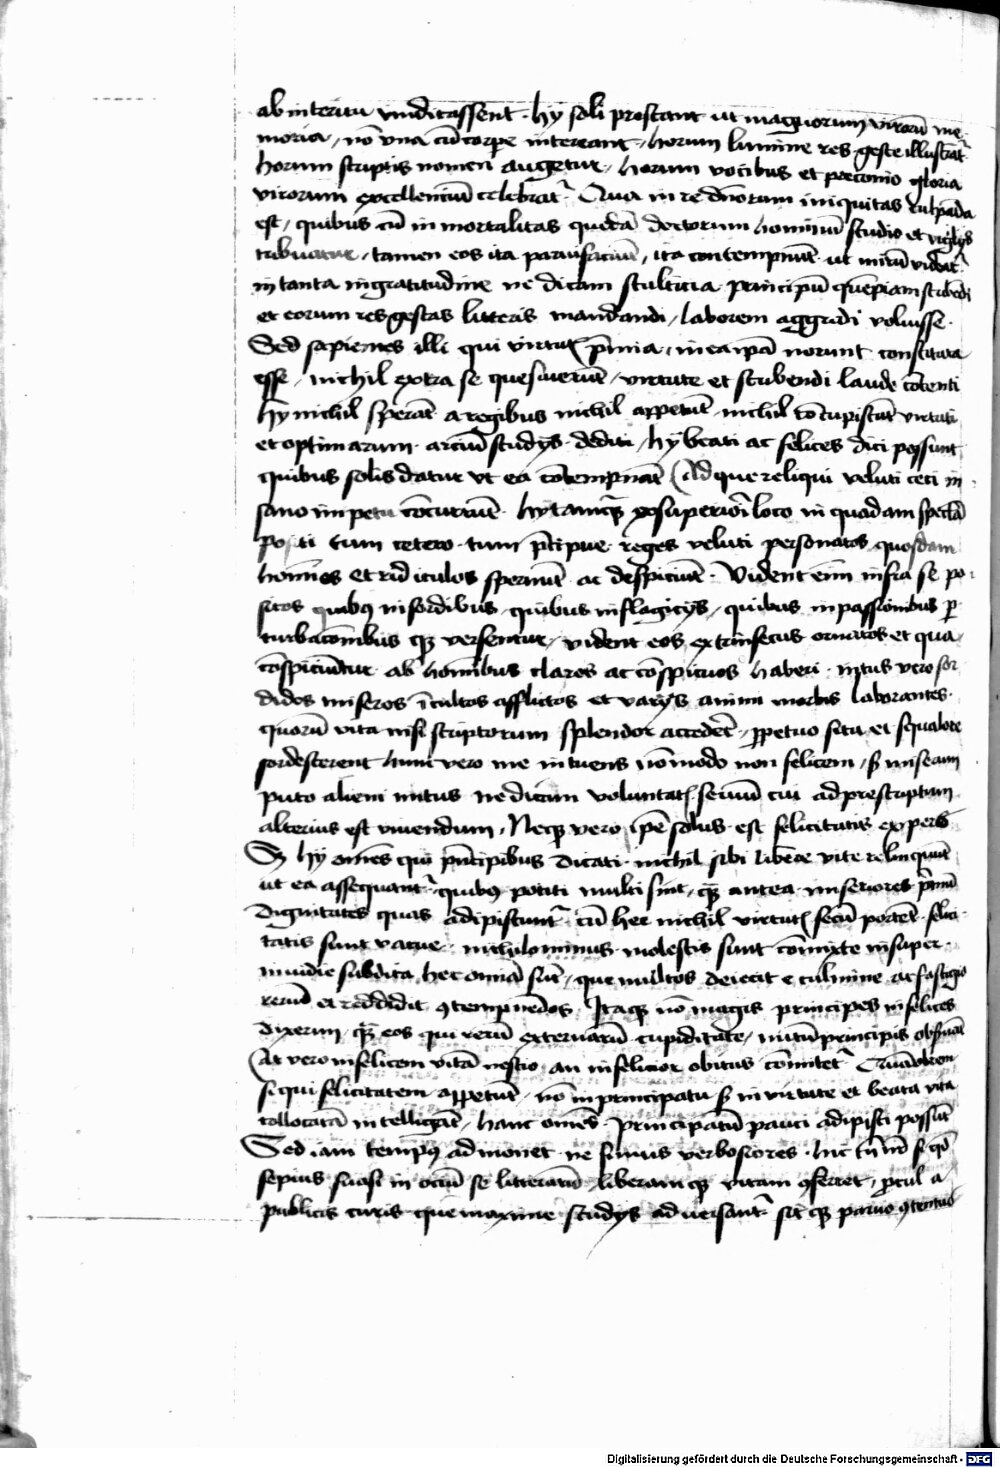 ab interitu vindicassent · hy soli prestant ut magnorum virorū me
moria / nō vna cū corpe intereant / horum lumine res geste illustrāt᷑
horum scriptis nomen augetur / horum vocibus et preconio gloria
virorum excellenciū celebrat᷑ · Qua in re dnōrum iniquitas culpāda
est / quibus cū inmortalitas quedā doctorum hominū studio et vigilijs
tribuatur / tamen eos ita paruifaciūt / ita contempnūt · ut mirū videat᷑
in tanta ingratitudine ne dicam stulticia principū quēpiam scribēdi
et eorum res gestas litteris mandandi / laborem aggredi voluisse ·
Sed sapientes illi qui virtutꝭ p̄mia / in ea ip̄a norunt constituta
esse / nichil extra se quesiuerūt / virtute et scribendi laude cōtenti
hy nichil sperāt a regibus nichil appetūt / nichil cōcupiscūt virtuti
et optimarum · arciū studijs dediti / hy beati ac felices dici possunt
quibus solis datur vt ea cōtempnāt / Ad que reliqui veluti ceci in
sano impetu cōcurrūt · hy tamqꝫ ex superiori loco in quadam speculā
positi tum cetero · tum p̄cipue · reges veluti personatos quosdam
homīes et ridiculos spernūt ac despiciūt · Vident em̄ infra se po
sitos quibꝰ in sordibus / quibus in flagicijs / quibus in passionibus p̲
turbacōnibus qꝫ versentur / vident eos extrinsecus ornatos et qua
cōspiciūtur ab homībus claros ac cōspicuos haberi · intus vero sor
didos miseros īcultos afflictos et varijs animi morbis laborantes ·
quorū vita nisi scriptorum splendor accedet᷑ / ꝑpetuo situ et squalore
sordescerent hunc vero me intuens nō modo non felicem / sꝫ miserum
puto alieni nutus ne dicam voluntatꝭ seruū cui ad prescriptum
alterius est viuendum / Necqꝫ vero ip̄e solus est felicitatis expers
Sꝫ hy omēs qui p̄ncipibus dicati · nichil sibi libere vite relinquūt
ut ea assequant᷑ · quibꝰ potiti multi sint / qꝫ antea miseriores p̄terea
dignitates quas adipiscunt᷑ · cū hec nichil virtutꝭ secū portēt · felici
tatis sunt vacue · nichilominus molestis sunt cōmixte insuper ·
inuidie subdita hec omnia sūt / que multos deiecit e culmine ac fastigio
rerū et reddidit ꝯtempnēdos / Itaqꝫ nō magis principes infelices
dixerim qꝫ eos qui rerū externarū cupiditate / nutū principis obseruāt
At vero infelicem vitā nescio an infelicior obitus cōmitet᷑ Quāobrem
si qui felicitatem appetūt / nō in principatu sꝫ in virtute et beata vita
collocatā intelligāt / hanc omēs · principatū pauci adipisci possūt
Sed iam tempꝰ admonet ne simus verbosiores · hic tn̄ si qd̄
sepius suasi in ociū se litteratū liberamqꝫ vitam ꝯferret / ꝓcul a
publicis curis que maxime studijs aduersant᷑ sit qꝫ paruo ꝯtentus
Digitalisierung gefördert durch die Deutsche Forschungsgemeinschaft - DFG